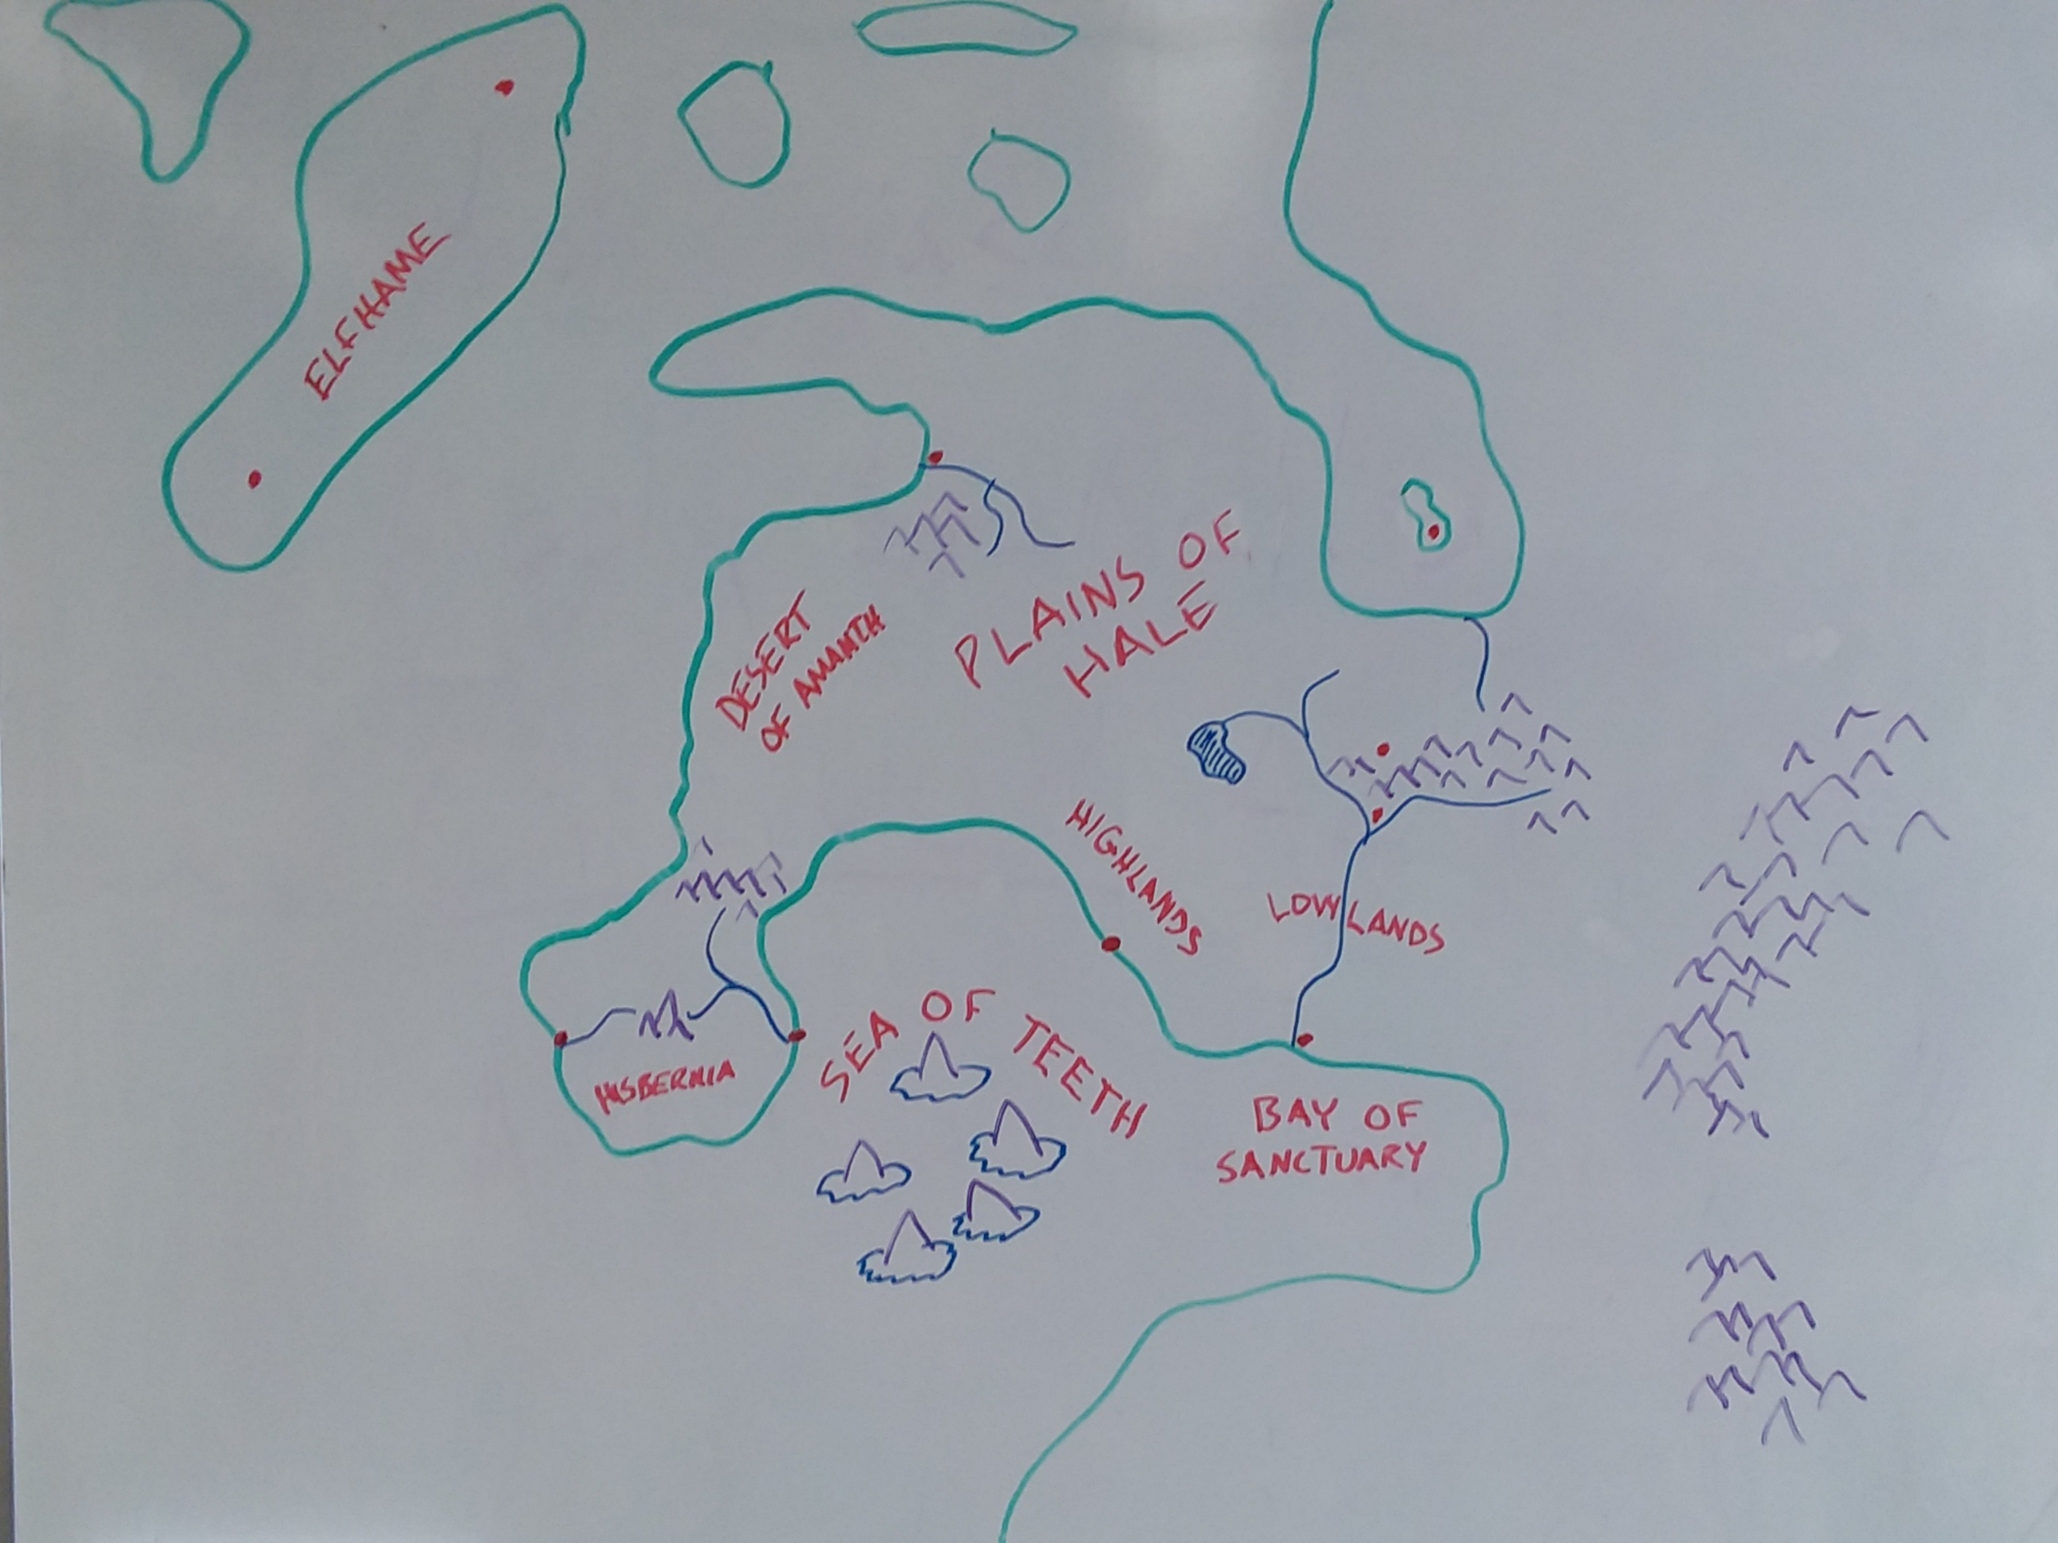 ELFHAME
PLAINS OF
HALE
DESERT
OF AMANTH
HIGHLANDS
LOWLANDS
SEA OF TEETH
HISBERNIA
BAY OF
SANCTUARY